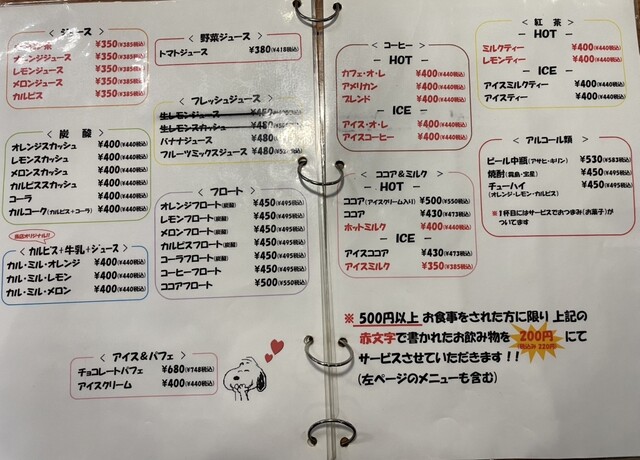 < ジュース >
茶 ¥350(¥385税込)
オレンジジュース ¥350(¥385税込)
レモンジュース ¥350(¥385税込)
メロンジュース ¥350(¥385税込)
カルピス ¥350(¥385税込)
< 野菜ジュース >
トマトジュース ¥380(¥418税込)
< フレッシュジュース >
生レモンジュース ¥450
生レモンスカッシュ ¥480
バナナジュース ¥480
フルーツミックスジュース ¥480
< 炭 酸 >
オレンジスカッシュ ¥400(¥440税込)
レモンスカッシュ ¥400(¥440税込)
メロンスカッシュ ¥400(¥440税込)
カルピススカッシュ ¥400(¥440税込)
コーラ ¥400(¥440税込)
カルコーク(カルピス+コーラ) ¥400(¥440税込)
当店オリジナル!!
< カルピス+牛乳+ジュース >
カル・ミル・オレンジ ¥400(¥440税込)
カル・ミル・レモン ¥400(¥440税込)
カル・ミル・メロン ¥400(¥440税込)
< フロート >
オレンジフロート(炭酸) ¥450(¥495税込)
レモンフロート(炭酸) ¥450(¥495税込)
メロンフロート(炭酸) ¥450(¥495税込)
カルピスフロート(炭酸) ¥450(¥495税込)
コーラフロート(炭酸) ¥450(¥495税込)
コーヒーフロート ¥450(¥495税込)
ココアフロート ¥500(¥550税込)
< アイス&パフェ >
チョコレートパフェ ¥680(¥748税込)
アイスクリーム ¥400(¥440税込)
< コーヒー >
— HOT —
カフェ・オ・レ ¥400(¥440税込)
アメリカン ¥400(¥440税込)
ブレンド ¥400(¥440税込)
— ICE —
アイス・オ・レ ¥400(¥440税込)
アイスコーヒー ¥400(¥440税込)
< ココア&ミルク >
— HOT —
ココア(アイスクリーム入り) ¥500(¥550税込)
ココア ¥430(¥473税込)
ホットミルク ¥400(¥440税込)
— ICE —
アイスココア ¥430(¥473税込)
アイスミルク ¥350(¥385税込)
< 紅 茶 >
— HOT —
ミルクティー ¥400(¥440税込)
レモンティー ¥400(¥440税込)
— ICE —
アイスミルクティー ¥400(¥440税込)
アイスティー ¥400(¥440税込)
< アルコール類 >
ビール中瓶(アサヒ・キリン) ¥530(¥583税込)
焼酎 ¥450(¥495税込)
チューハイ ¥450(¥495税込)
(オレンジ・レモン・カルピス)
※1杯目にはサービスでおつまみ(お菓子)が
ついてます
※ 500円以上 お食事をされた方に限り 上記の
赤文字で書かれたお飲み物を 200円 にて
(税込み 220円)
サービスさせていただきます!!
(左ページのメニューも含む)